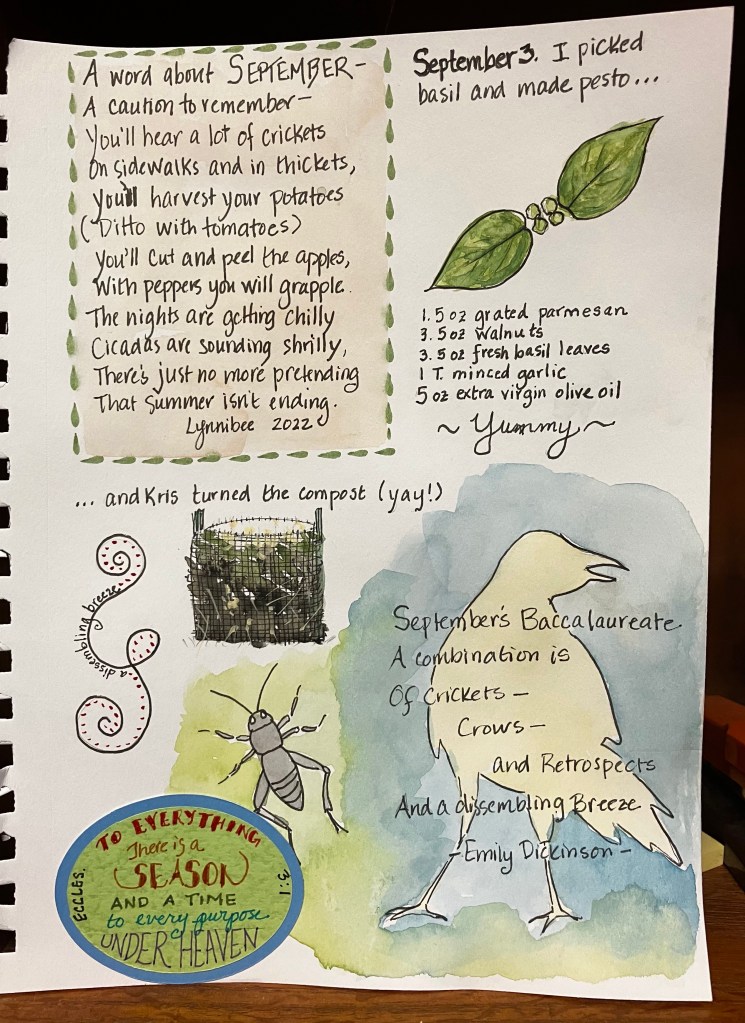 A word about SEPTEMBER-
A caution to remember-
You'll hear a lot of crickets
On sidewalks and in thickets,
you'll harvest your potatoes
(Ditto with tomatoes)
You'll cut and peel the apples,
With peppers you will grapple.
The nights are getting chilly
Cicadas are sounding shrilly,
There's just no more pretending
That Summer isn't ending.
Lynnibee 2022
September 3. I picked
basil and made pesto...
1.5 oz grated parmesan
3.5 oz walnuts
3.5 oz fresh basil leaves
1 T. minced garlic
5 oz extra virgin olive oil
~ Yummy ~
... and Kris turned the compost (yay!)
a dissembling breeze
September's Baccalaureate
A combination is
Of Crickets -
Crows -
and Retrospects
And a dissembling Breeze
- Emily Dickinson -
TO EVERYTHING
There is a
SEASON
AND A TIME
to every purpose
UNDER HEAVEN
ECCLES.
3:1